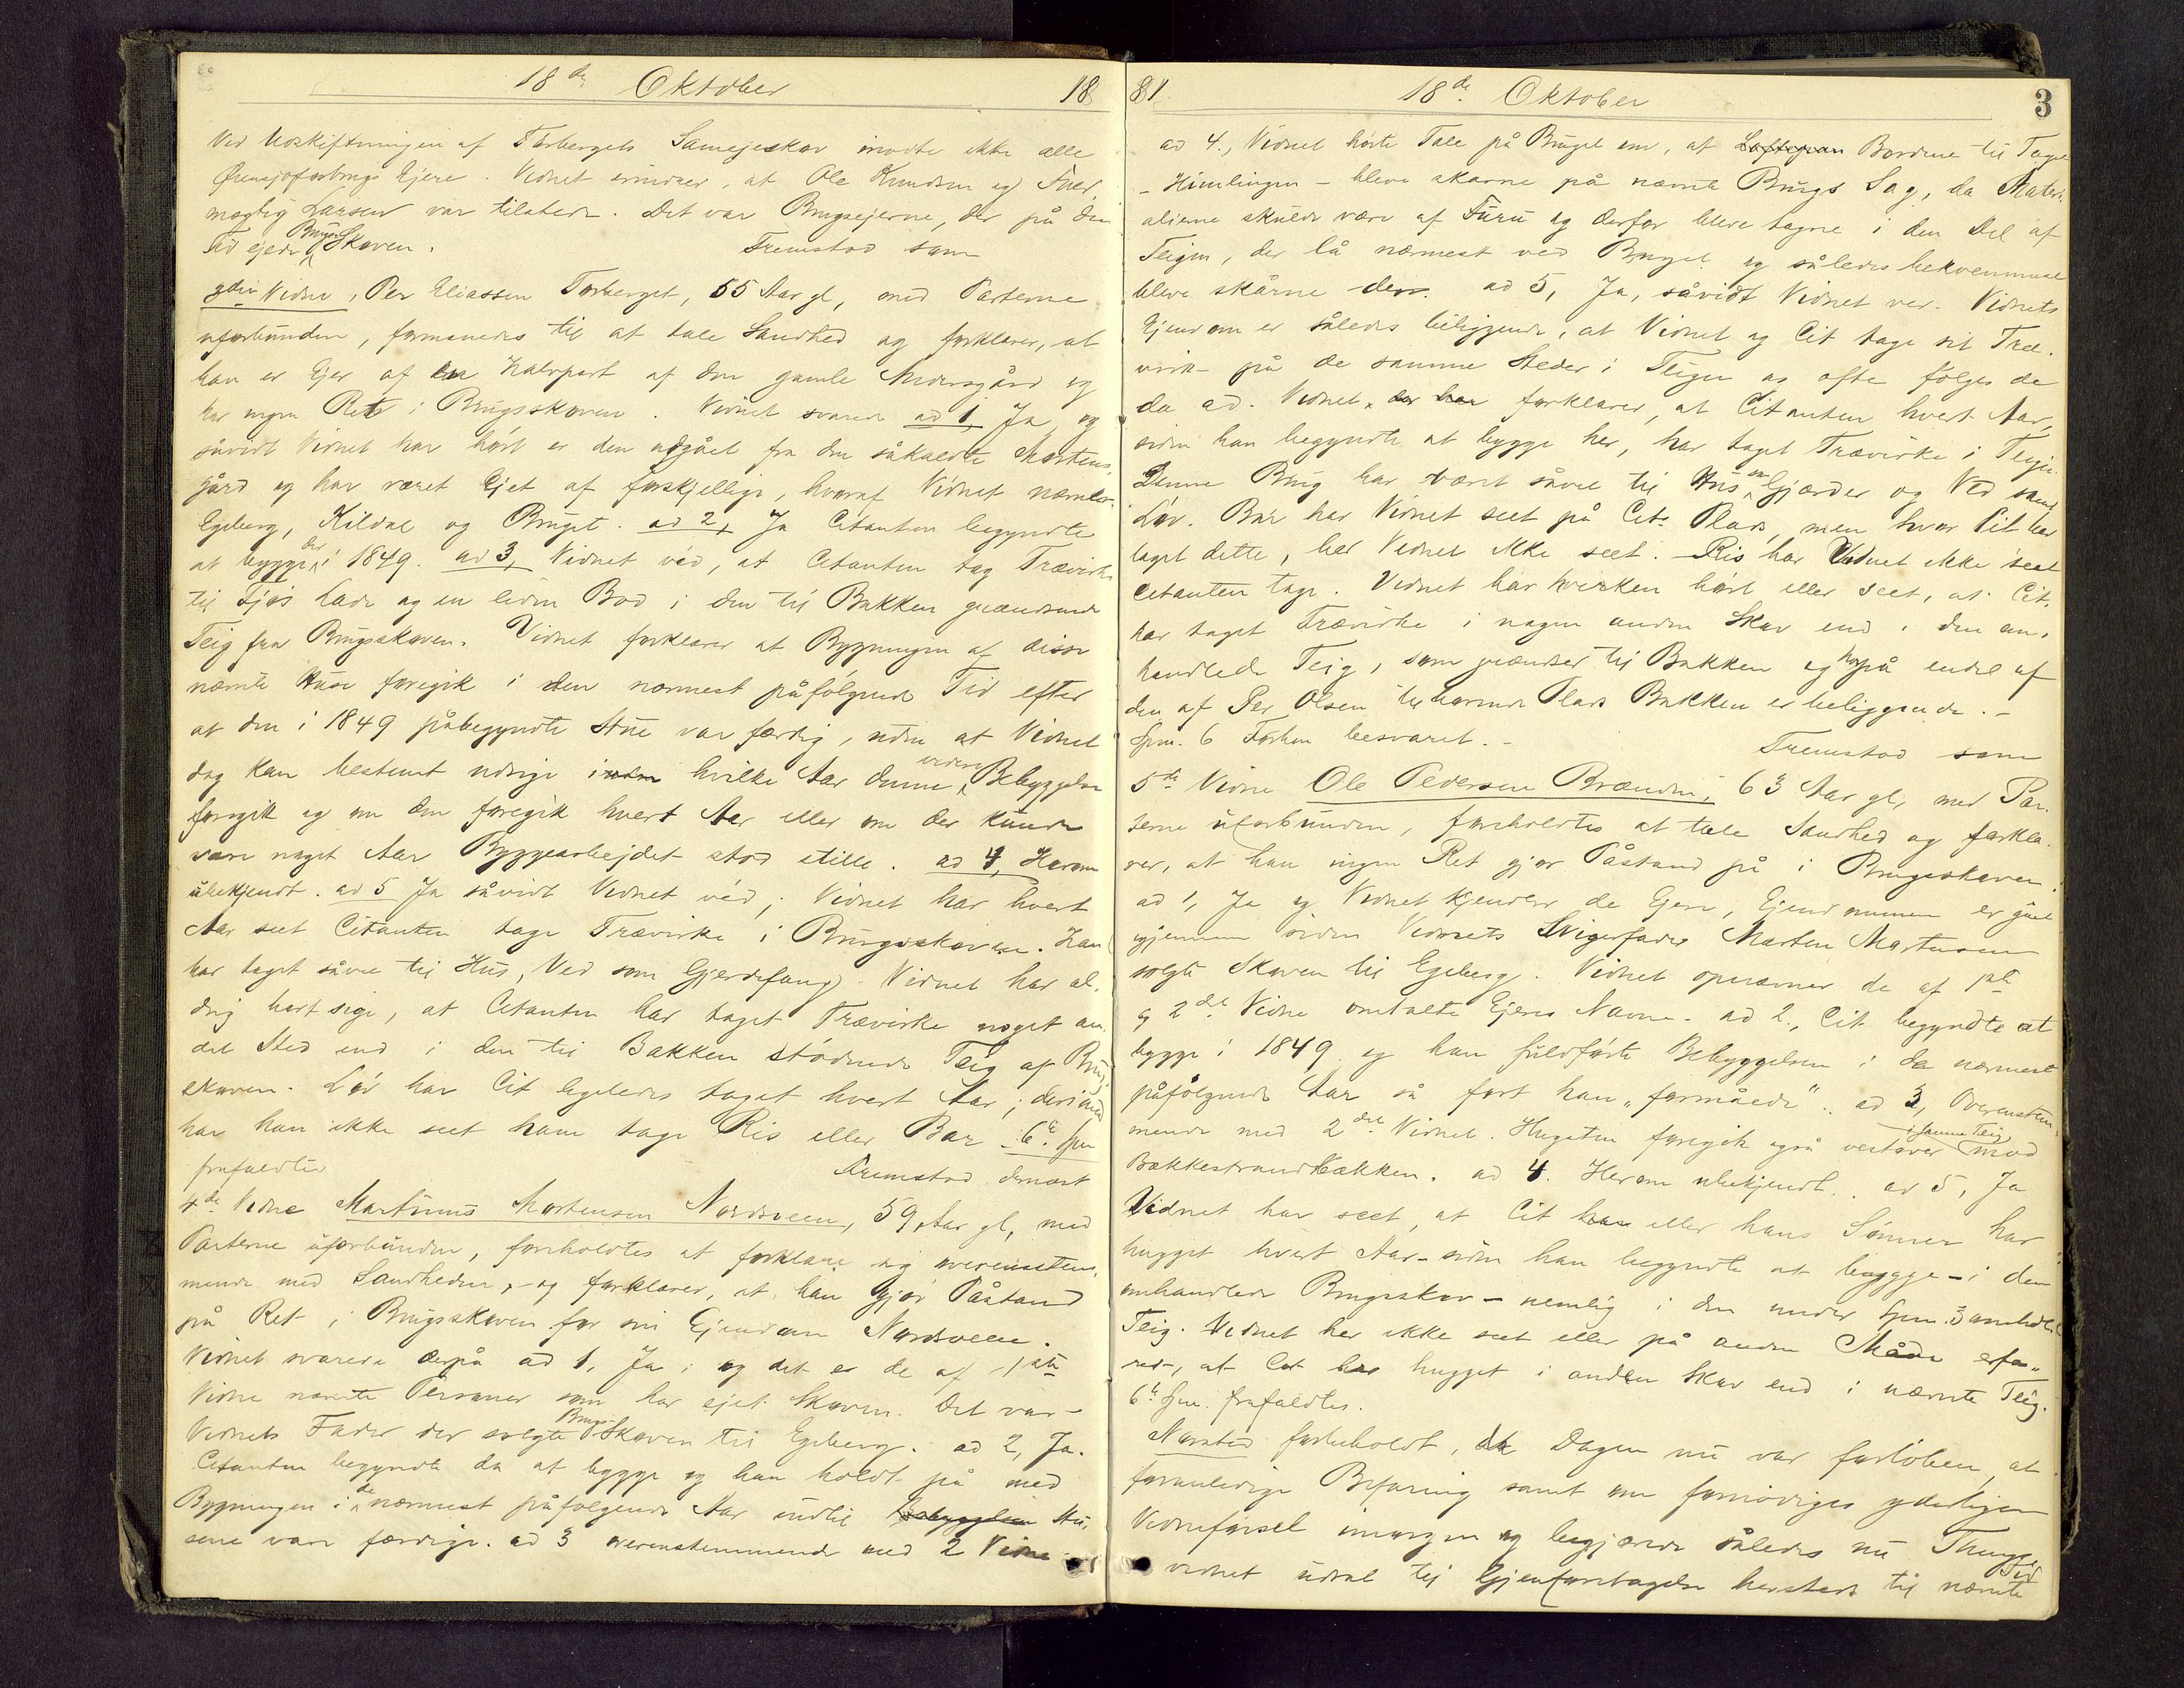 18de Oktober 18
Ved Udskiftningen af Torbergets Samejeskov mødte ikke alle
Ejere. Vidnet erindrer, at Ole Knudsen og Fuld
mægtig Larsen var tilstede. Det var Brugsejerne, der på den
Tid ejede Brugs Skoven. Fremstod som
3die Vidne, Per Eliassen Torberget, 55 Aar gl, med Parterne
uforbunden, formanedes til at tale Sandhed og forklarer, at
han er Ejer af en Halvpart af den gamle Mortensgård og
har ingen Ret i Brugsskoven. Vidnet svarede ad 1, Ja, og
såvidt Vidnet har hørt er den udgået fra den såkaldte Mortens
gård og har været Ejet af forskjellige, hvoraf Vidnet nævner
Egeberg, Kildal og Bruget. ad 2, Ja Citanten begyndte
at bygge der i 1849. ad 3, Vidnet véd, at Citanten tog Trævirke
til Fjøs Lade og en liden Bod i den til Bakken grændsende
Teig fra Brugsskoven. Vidnet forklarer at Bygningen af disse
nævnte Huse foregik i den nærmest påfølgende Tid efter
at den i 1849 påbegyndte Stue var færdig, uden at Vidnet
dog kan bestemt udsige inden hvilke Aar denne videre Bebyggelse
foregik og om den foregik hvert Aar eller om der kunde
være noget Aar Byggearbejdet stod stille. ad 4, Herom
ubekjendt. ad 5 Ja såvidt Vidnet véd; Vidnet har hvert
Aar seet Citanten tage Trævirke i Brugsskoven. Han
har taget såvel til Hus, Ved som Gjerdefang. Vidnet har al-
drig hørt sige, at Citanten har taget Trævirke noget an
det Sted end i den til Bakken stødende Teig af Brugs
skoven. Løv har Cit ligeledes taget hvert Aar; derimod
har han ikke seet ham tage Ris eller Bar. 6te Spm
frafaldtes Fremstod dernæst
4de Vidne Martinus Mortensen Nordsveen, 59 Aar gl, med
Parterne uforbunden, foreholdtes at forklare sig overensstem
mende med Sandheden, og forklarer, at han gjør Påstand
på Ret i Brugsskoven for sin Ejendom Nordsveen.
Vidnet svarede derpå ad 1, Ja; og det er de af 1ste
Vidne nævnte Personer som har ejet Skoven. Det var
Vidnets Fader der solgte Brugs-Skoven til Egeberg. ad 2, Ja.
Citanten begyndte da at bygge og han holdt på med
Bygningen i de nærmest påfølgende Aar indtil Bebyggelsen Hu,
sene vare færdige. ad 3 overenstemmende med 2 Vidne
81 18de Oktober 3
ad 4., Vidnet hørte Tale på Bruget om, at Bordene til Taget
- Himlingen - bleve skårne på nævnte Brugs Sag, da Materi
alierne skulde være af Furu og derfor bleve tagne i den Del af
Teigen, der lå nærmest ved Bruget og således bekvemmest
bleve skårne der. ad 5, Ja, såvidt Vidnet ved. Vidnets
Ejendom er således beliggende, at Vidnet og Cit tage sit Træ-
virke på de samme Steder i Teigen og ofte følges de
da ad. Vidnet forklarer, at Citanten hvert Aar,
siden han begyndte at bygge her, har taget Trævirke i Teigen.
Denne Brug har været såvel til Hus som Gjærder og Ved samt
Løv. Bar har Vidnet seet på Cits Plads, men hvor Cit har
taget dette, har Vidnet ikke seet. Ris har Vidnet ikke seet
Citanten tage. Vidnet har hverken hørt eller seet, at Cit.
har taget Trævirke i nogen anden Skov end i den om-
handlede Teig, som grændser til Bakken og hvorpå endel af
den af Per Olsen tilhørende Plads Bakken er beliggende. -
Spm. 6 Forhen besvaret. - Fremstod som
5te Vidne Ole Pedersen Brænden, 63 Aar gl, med Par
terne uforbunden, foreholdtes at tale Sandhed og forkla
rer, at han ingen Ret gjør Påstand på i Brugsskoven.
ad 1, Ja og Vidnet kjender de Ejere, Ejendommen er gået
igjennem siden Vidnets Svigerfader Morten Mortensen
solgte Skoven til Egeberg. Vidnet opnævner de af 1ste
og 2det Vidne omtalte Ejeres Navne. ad 2., Cit begyndte at
bygge i 1849 og han fuldførte Bebyggelsen i de nærmest
påfølgende Aar så fort han "formåede". ad 3, Overenstem
mende med 2det Vidnet. Hugsten foregik også vestover i samme Teig mod
Bakkestrandbækken. ad 4. Herom ubekjendt. ad 5, Ja
Vidnet har seet, at Cit han eller hans Sønner har
hugget hvert Aar - siden han begyndte at bygge - i den
omhandlede Brugsskov - nemlig i den under Spm. 3 omhdl.
Teig. Vidnet har ikke seet eller på anden Måde erfa-
ret, at Cit har hugget i anden Skov end i nævnte Teig.
6te Spm. frafaldtes.
Narstad forbeholdt, da Dagen nu var forløben, at
foranledige Befaring samt om fornødiges yderligere
Vidneførsel imorgen og begjærede således nu Thinge
vidnet udsat til Gjenforetagelse hersteds til nævnte Tid